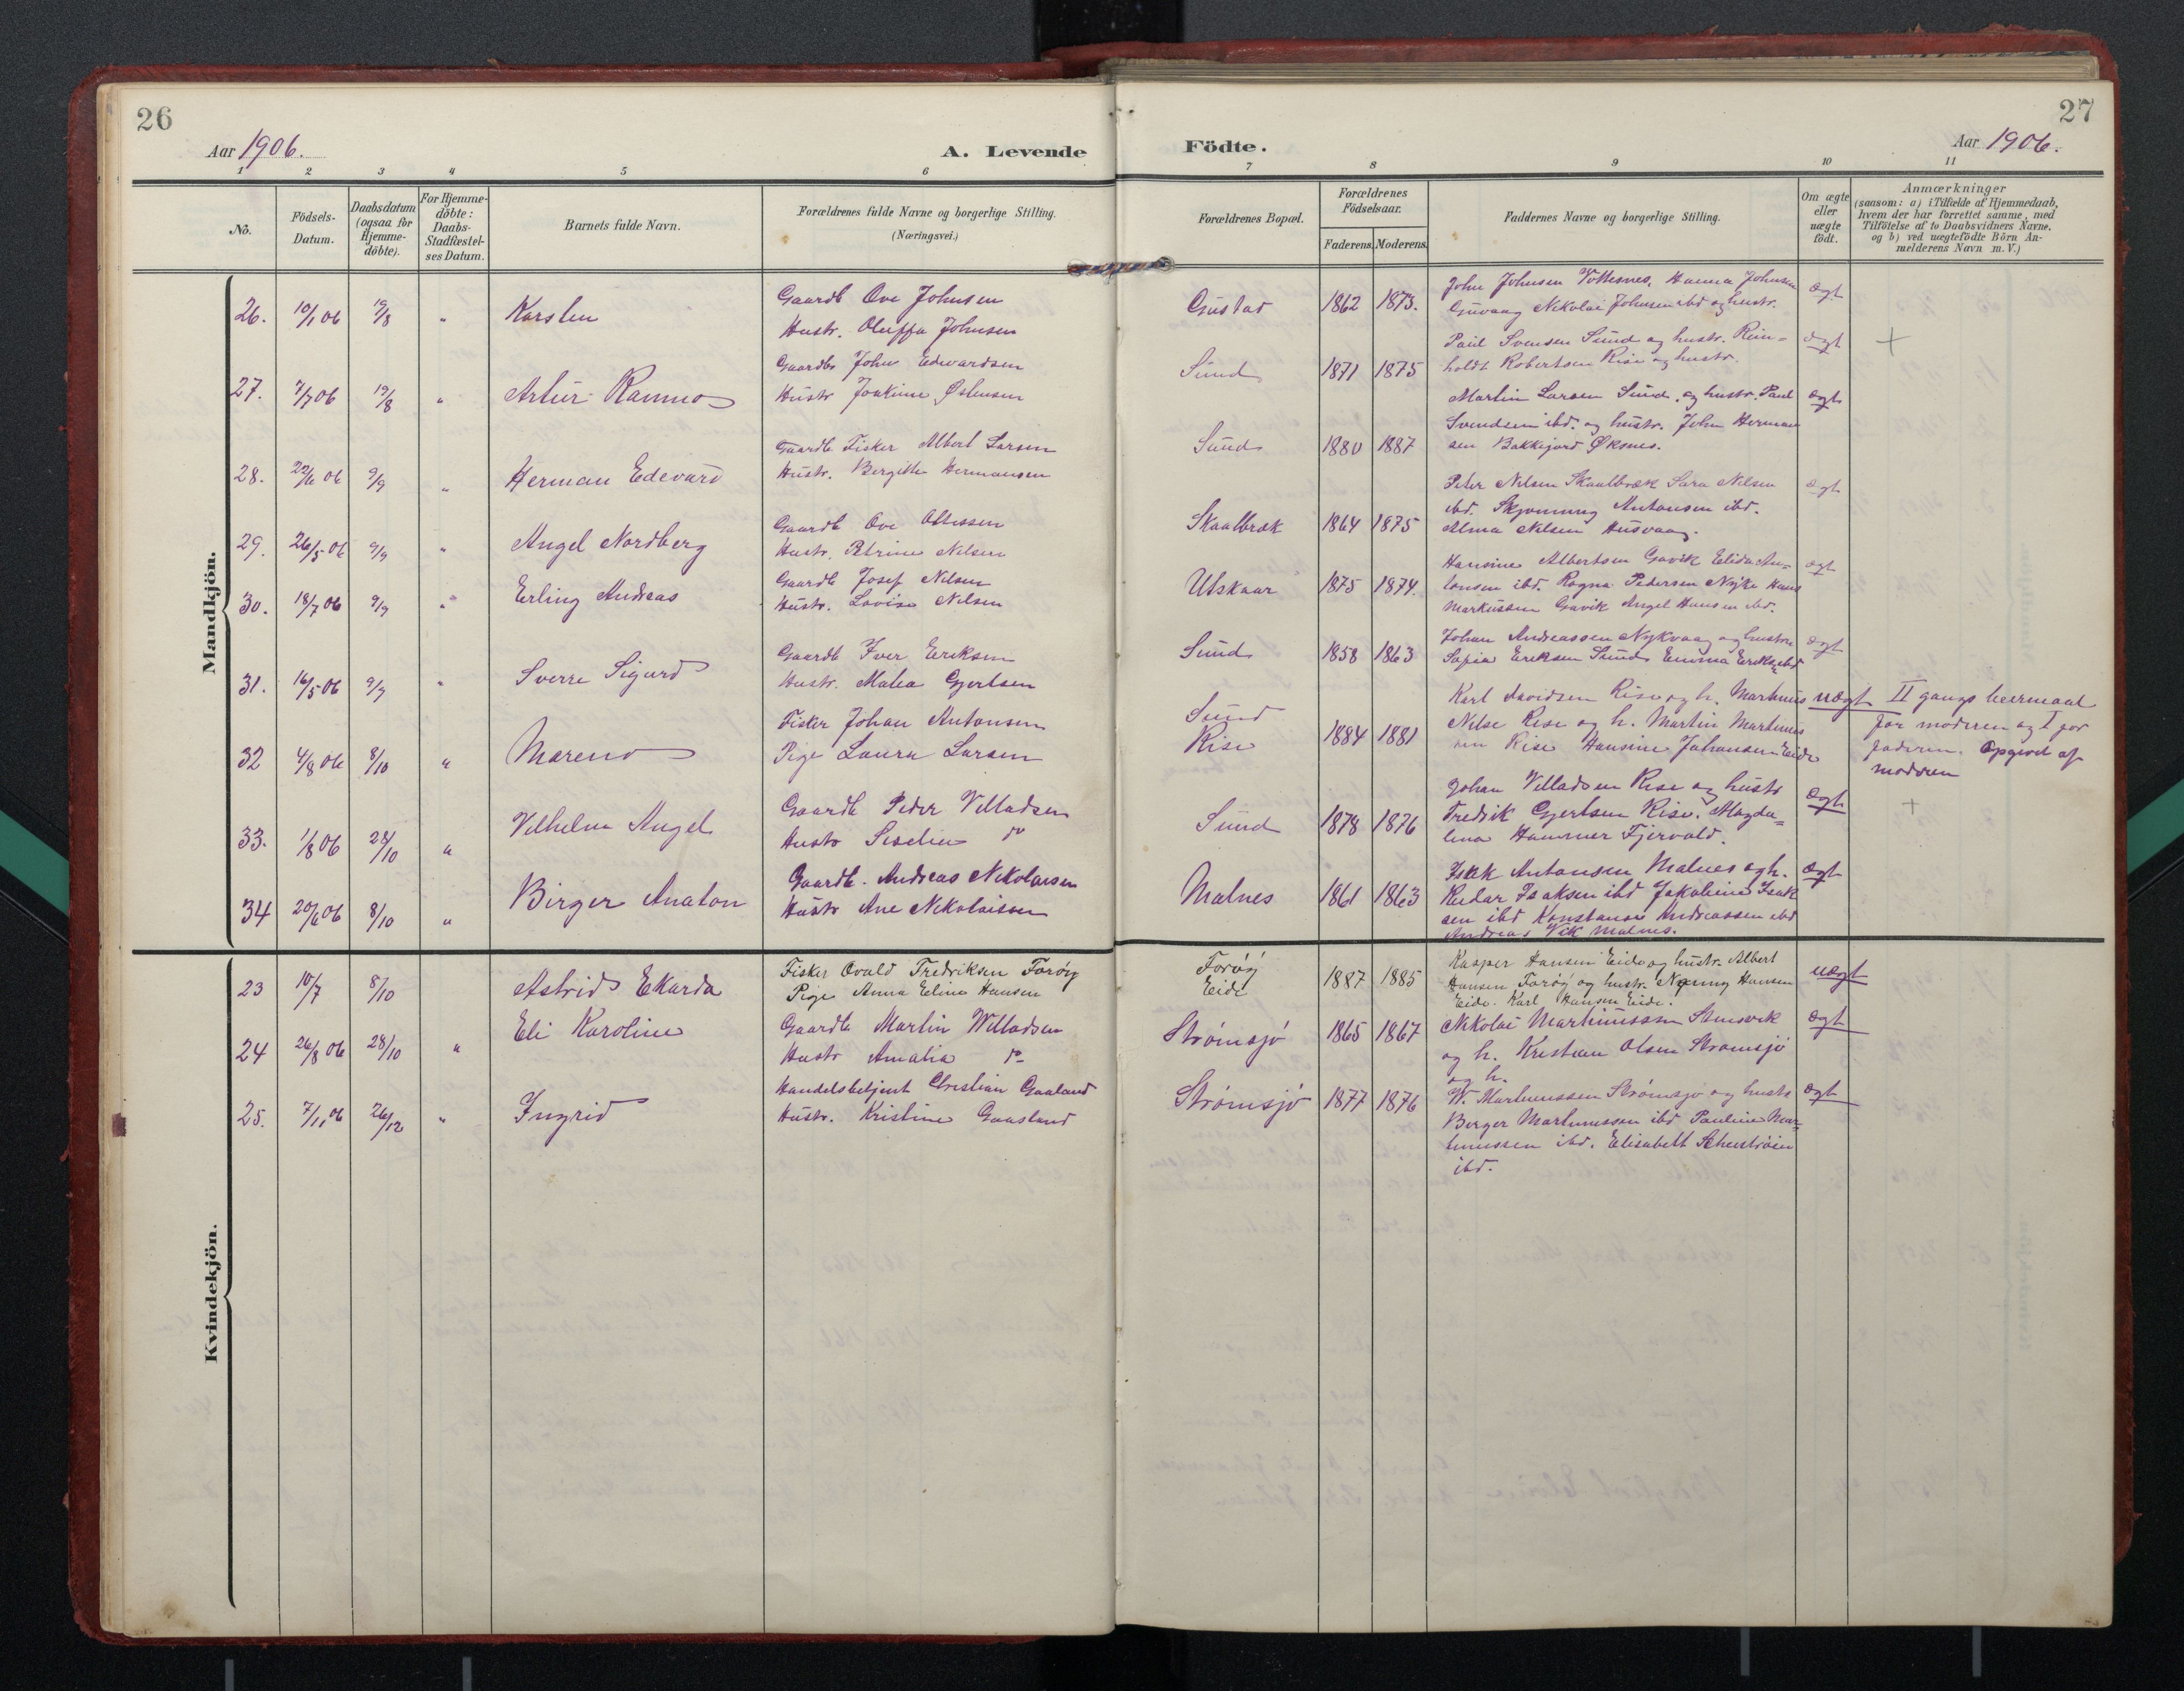 26
Aar 1906.
A. Levende
1 2 3 4 5 6
No.
Födsels-
Datum.
Daabsdatum
(ogsaa for
Hjemme-
döbte).
For Hjemme-
döbte:
Daabs-
Stadfæstel-
ses Datum.
Barnets fulde Navn.
Forældrenes fulde Navne og borgerlige Stilling.
(Næringsvei.)
Mandkjön.
26. 10/1 06 19/8 " Karsten
Gaardb Ove Johnsen
Hustr. Oluffa Johnsen
27. 4/7 06 19/8 " Artur Ranmo
Gaardbr John Edvardsen
Hustr Joakime Østensen
28. 22/6 06 9/9 " Herman Edevard
Gaardb Fisker Albert Larsen
Hustr. Bergitte Hermansen
29. 26/5 06 9/9 " Angel Nordberg
Gaardb Ove
Hustr. Petrine Nilsen
30. 18/7 06 9/9 " Erling Andreas
Gaardb Josef Nilsen
Hustr. Lovise Nilsen
31. 16/5 06 9/9 " Sverre Sigurd
Gaardb Iver Eriksen
Hustr. Malea Gjertsen
32 4/8 06 8/10 " Mareno
Fisker Johan Antonsen
Pige Laura Larsen
33. 1/8 06 28/10 " Vilhelm Angel
Gaardb Peder Villadsen
Hustr Siselie do
34 20/6 06 8/10 " Birger Anaton
Gaardb. Andreas Nikolaisen
Hustr Ane Nikolaisen
Kvindekjön.
23 10/7 8/10 Astrid Ekarda
Fisker Ovald Fredriksen Forøy
Pige Anna Eline Hansen
24 26/8 06 28/10 " Eli Karoline
Gaardb Martin Willadsen
Hustr Amalia do
25. 7/11 06 26/12 " Ingrid
Handelsbetjent Christian Gaaland
Hustr. Kristine Gaasland
27
Födte.
Aar 1906.
7 8 9 10 11
Forældrenes Bopæl.
Forældrenes
Födselsaar.
Faderens. Moderens.
Faddernes Navne og borgerlige Stilling.
Om ægte
eller
uægte
födt.
Anmærkninger
(saasom: a) i Tilfælde af Hjemmedaab,
hvem der har forrettet samme, med
Tilföielse af to Daabsvidners Navne,
og b) ved uægtefödte Börn An-
melderens Navn m.V.)
Gustad 1862 1873.
John Johnsen Vottesnes, Hanna Johnsen
Guvaag Nikolai Johnsen ibd og hustr.
Ægt
Sund 1871 1875
Paul Svensen Sund og hustr. Rein-
holdt Robertsen Rise og hustr.
Ægt +
Sund 1880 1887
Martin Larsen Sund, og hustr. Paul
Svendsen ibd. og hustr. John Herman
sen Bakkejord Øksnes.
Ægt
Skaalbræk 1864 1875
Peter Nilsen Skaalbræk Sara Nilsen
ibd. Skjønning Antonsen ibd.
Alma Nilsen Husvaag.
Ægt
Utskaar 1875 1874.
Hansine Albertsen Gavik Elida An-
tonsen ibd. Ragna Pedersen Nyke Hans
Markussen Gavik Angel Hansen ibd.
Ægt
Sund 1858 1863
Johan Andreassen Nykvaag og hustru
Sofia Eriksen Sund Emma Eriksn ibd
Ægt
Sund
Rise 1884 1881
Karl Davidsen Rise og h. Martinus
Nilse Rise og h. Martin Martinus
sen Rise Hansine Johansen Eide
uægt
II gangs leiermaal
for moderen og I for
faderen. Opgivet af
moderen
Sund 1878 1876
Johan Villadsen Rise og hustr
Fredrik Gjertsen Rise. Magda-
lena Hammer Fjervold.
Ægt +
Malnes 1861 1863
Isak Antonsen Malnes og h.
Reidar Isaksen ibd Jakobine Isak
sen ibd Konstanse Andreassen ibd
Andreas Vik Malnes.
Ægt
Forøy
Eide 1887 1885
Kasper Hansen Eide og hustr. Albert
Hansen Forøy og hustr. Nanny Hansen
Eide. Karl Hansen Eide.
uægt
Strømsjö 1865 1867
Nikolai Martinussen
og h. Kristian Olsen Strømsjö
og h.
Ægt
Strømsjö 1877 1876
W. Martinussen Strømsjö og hustr
Berger Martinussen ibd Pauline Mar-
tinussen ibd. Elisabett
ibd.
Ægt